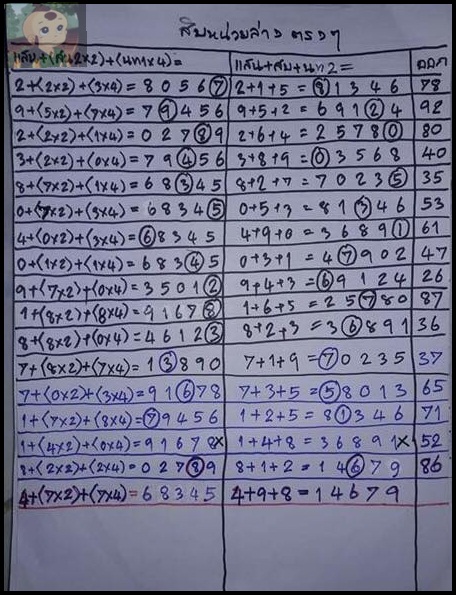 สิบหน่วยล่าง ตรงๆ
แสน+(สิบ2x2)+(นท1x4)= แสน+สิบ+นท2= ออก
2+(2x2)+(3x4)= 80567 2+1+5=81346 78
9+(5x2)+(7x4)= 79456 9+5+2=69124 92
2+(2x2)+(1x4)=02789 2+6+4=25780 80
3+(2x2)+(0x4)= 79456 3+8+9=03568 40
8+(7x2)+(1x4)= 68345 8+2+7=70235 35
0+(7x2)+(3x4)= 68345 0+5+3=81346 53
4+(0x2)+(3x4)=68345 4+9+0=36891 61
0+(1x2)+(1x4)=68345 0+3+1=47902 47
9+(7x2)+(0x4)=35012 9+4+3=69124 26
1+(8x2)+(8x4)=91678 1+6+5=25780 87
8+(8x2)+(0x4)=46123 8+2+3=36891 36
7+(8x2)+(7x4)=13890 7+1+9=70235 37
7+(0x2)+(3x4)=91678 7+3+5=58013 65
1+(7x2)+(8x4)=79456 1+2+5=81346 71
1+(4x2)+(0x4)=91678x 1+4+8=36891x 52
8+(2x2)+(2x4)=02789 8+1+2=14679 86
4+(7x2)+(7x4)=68345 4+9+8=14679